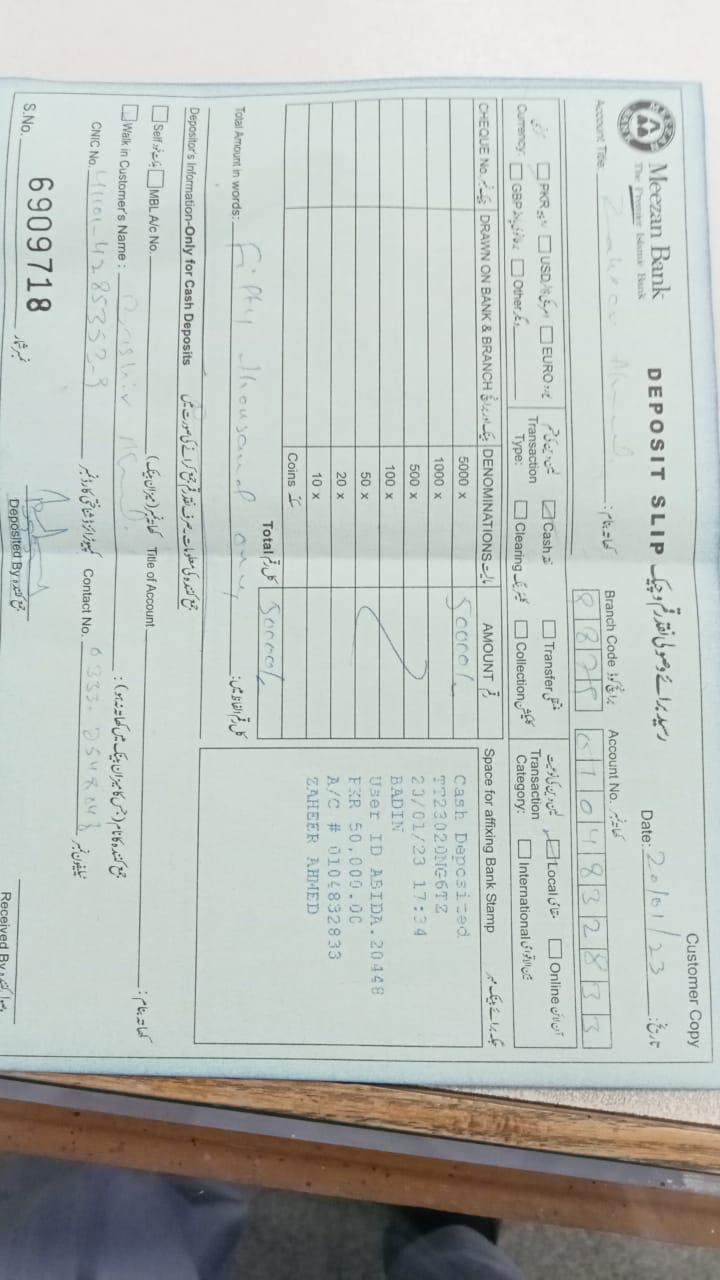 Customer Copy
MEEZAN BANK
Meezan Bank
The Premier Islamic Bank
DEPOSIT SLIP رسید برائے وصولی نقد رقم و چیک
Date: 20/01/23 تاریخ:
Account Title: Zaheer Ahmed کھاتہ بنام:
Branch Code برانچ کوڈ Account No. کھاتہ نمبر
0104832833
Currency: کرنسی PKR USD امریکی ڈالر EURO یورو
GBP برطانوی پاؤنڈ Other دیگر
Transaction Type: لین دین کی قسم Cash نقد Transfer منتقلی
Clearing کلیئرنگ Collection کلیکشن
Transaction Category: لین دین کی نوعیت Local مقامی Online آن لائن
International بین الاقوامی
CHEQUE No. چیک نمبر DRAWN ON BANK & BRANCH بینک اور برانچ DENOMINATIONS مالیت AMOUNT رقم
5000 x 50000/-
1000 x
500 x
100 x
50 x
20 x
10 x
Coins سکے
Total کل رقم 50000/-
Space for affixing Bank Stamp جگہ برائے بینک مہر
Cash Deposited
TT23020NG6TZ
20/01/23 17:34
BADIN
User ID ABIDA.20448
PKR 50,000.00
A/C # 0104832833
ZAHEER AHMED
Total Amount in words: Fifty thousand only کل رقم الفاظ میں:
Depositor's Information-Only for Cash Deposits جمع کنندہ کی معلومات۔ صرف نقد رقم جمع کرانے کی صورت میں
Self بذات خود MBL A/c No. کھاتہ نمبر (میزان بینک) Title of Account کھاتہ بنام:
Walk in Customer's Name : Bashir Ahmed جمع کنندہ کا نام (جس کا میزان بینک میں کھاتہ نہ ہو):
CNIC No. کمپیوٹرائزڈ شناختی کارڈ نمبر Contact No. ٹیلیفون نمبر
S.No. 6909718 نمبر شمار
Deposited By جمع کنندہ
Received By وصول کنندہ